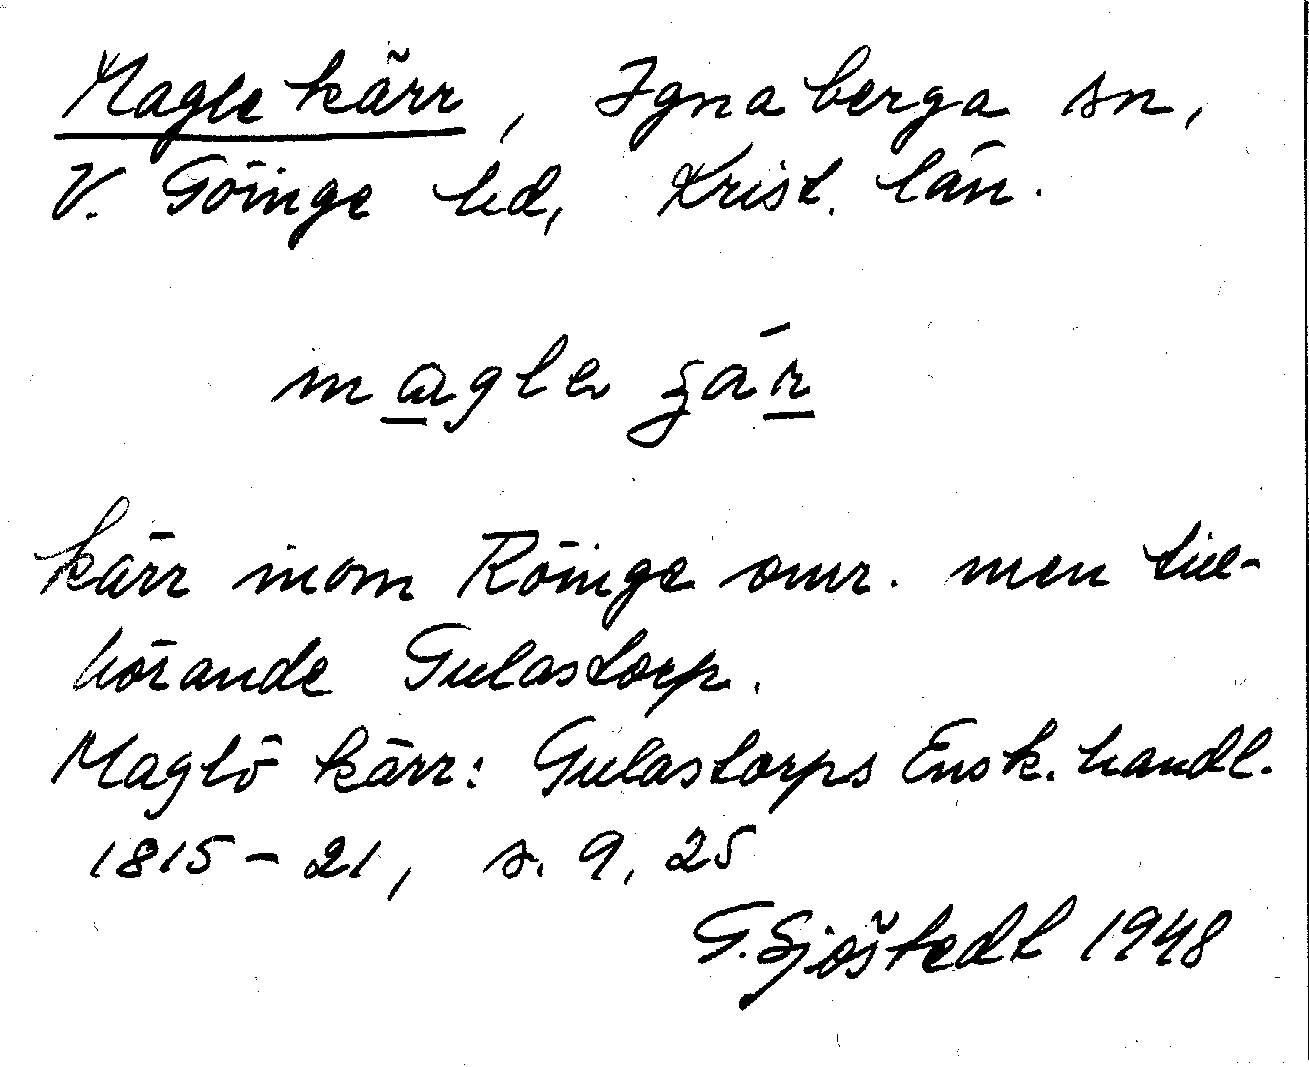 Magle kärr, Ignaberga sn,
V. Göinge hd, Krist. län.
kärr inom Röinge omr. men till-
hörande Gulastorp.
Maglö kärr: Gulastorps Ensk. handl.
1815-21, s. 9, 25
G. Sjöstedt 1948